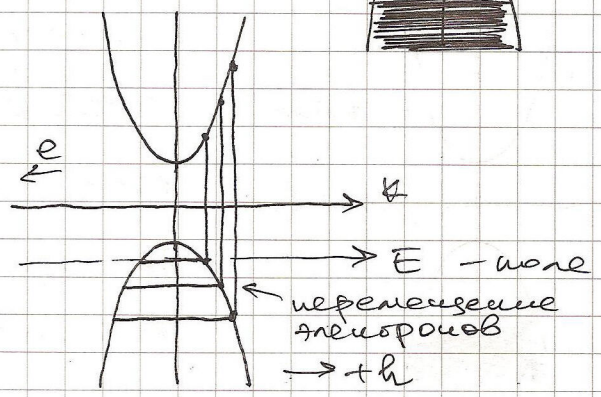 e
k
E – поле
перемещение
электронов
→ +h